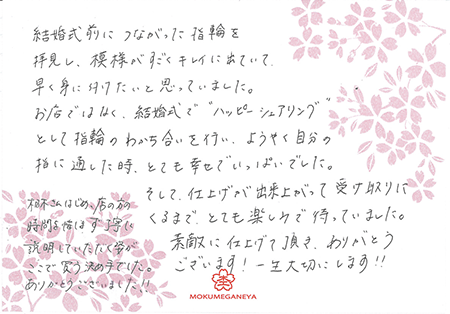 結婚式前につながった指輪を
拝見し、模様がすごくキレイに出ていて、
早く身に付けたいと思っていました。
お店ではなく、結婚式で"ハッピーシェアリング"
として指輪のわかち合いを行い、ようやく自分の
指に通した時、とても幸せでいっぱいでした。
そして、仕上げが出来上がって受け取りに
くるまで、とても楽しみで待っていました。
素敵に仕上げて頂き、ありがとう
ございます！一生大切にします!!
さんはじめ、店の方の
時間を惜しまず丁寧に
説明していただく姿が
ここで買う決め手でした。
ありがとうございました!!
MOKUMEGANEYA